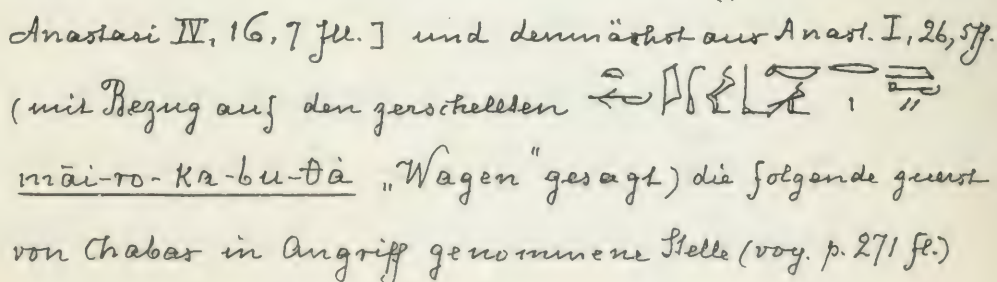 Anastasi IV, 16, 7 fll.] und demnächst aus Anast. I, 26, 5ff.
(mit Bezug auf den zerschellten
māi-ro-ka-bu-ṯà „Wagen" gesagt) die folgende zuerst
von Chabas in Angriff genommene Stelle (voy. p. 271 fl.)